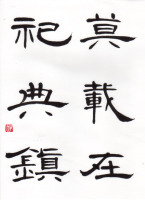 莫載在
祀典鎮